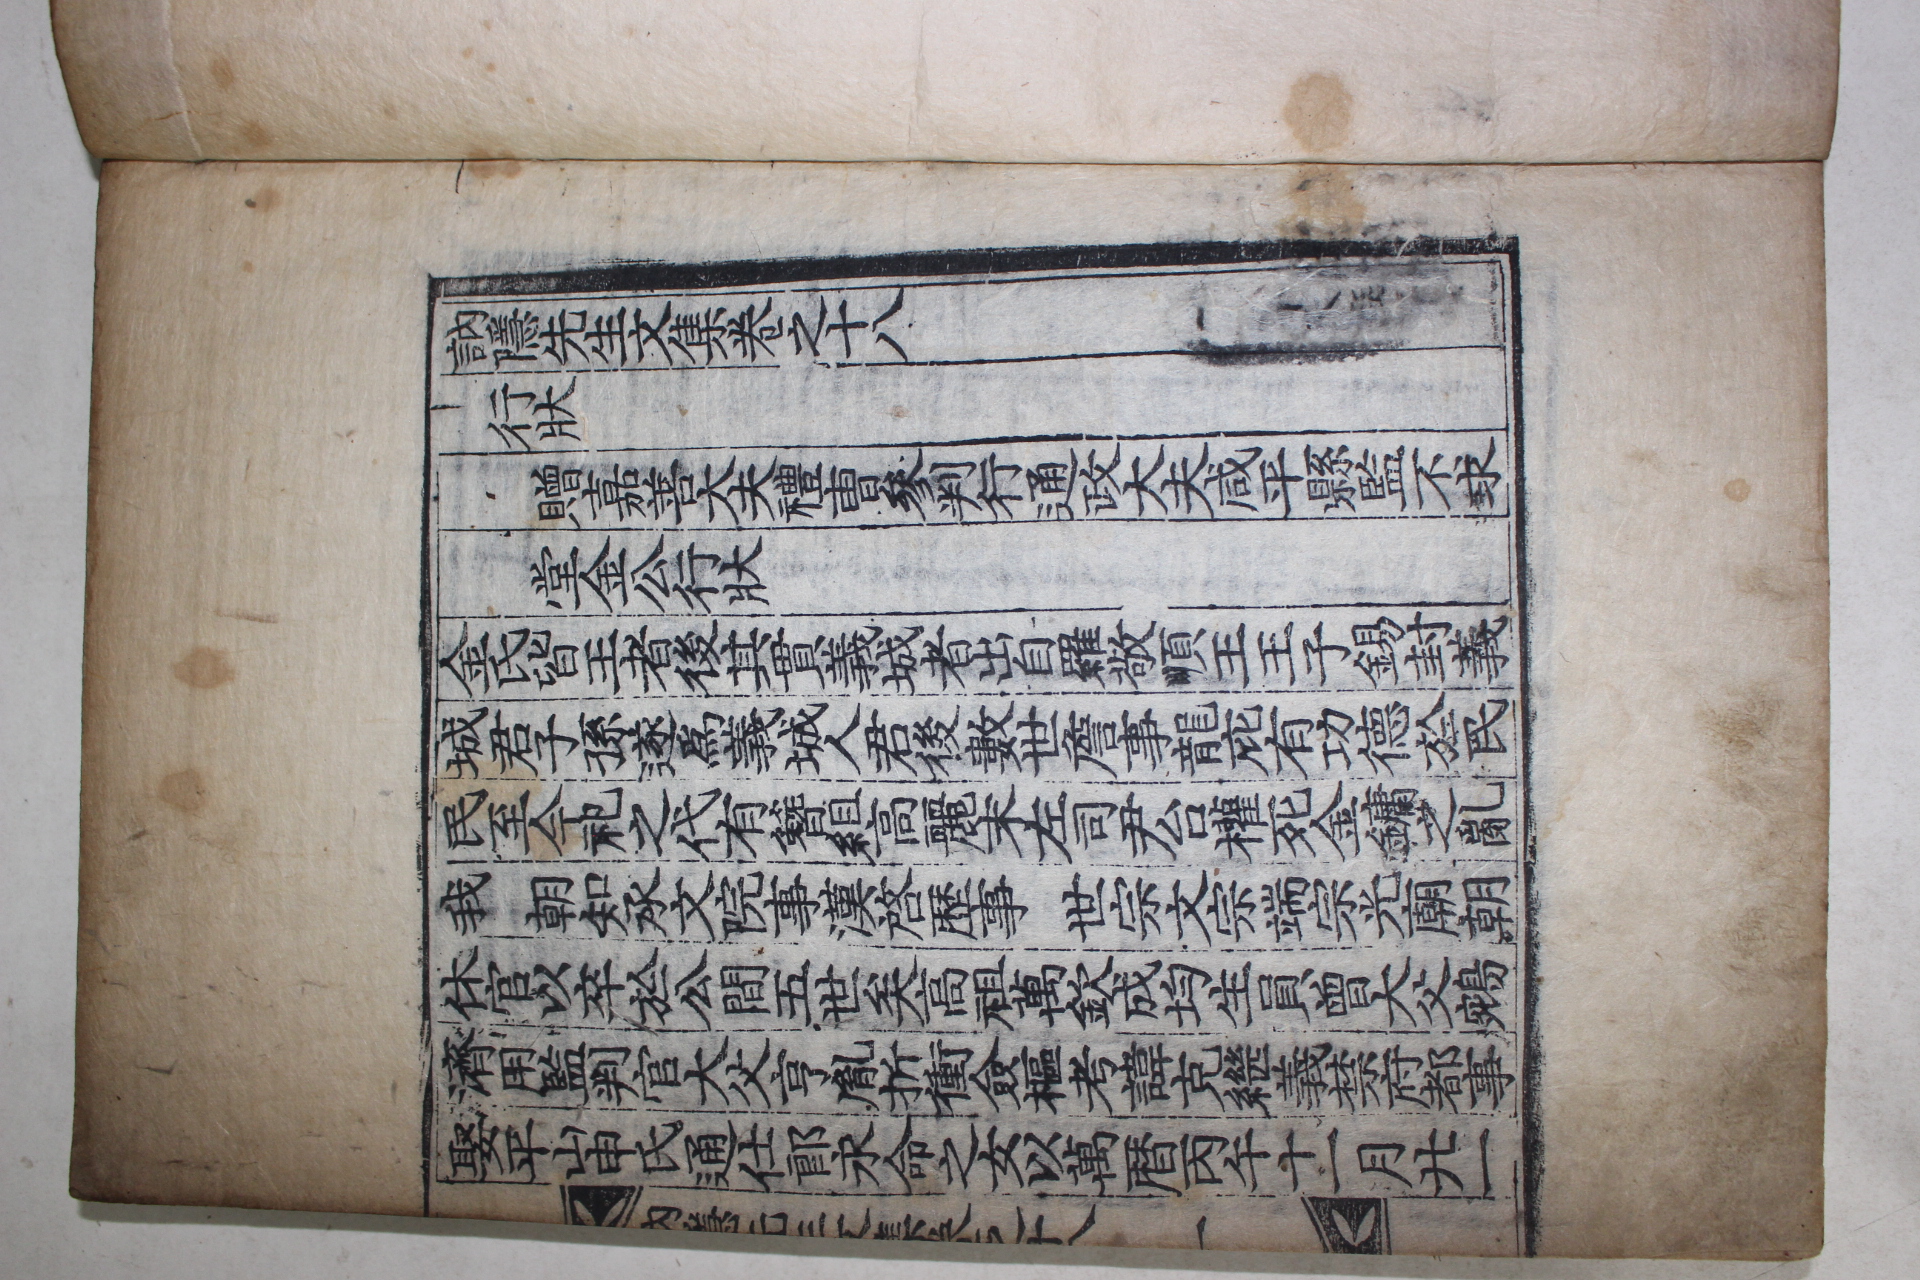 訥隱先生文集卷之十八
行狀
贈嘉善大夫禮曹參判行通政大夫咸平縣監不求
堂金公行狀
金氏皆王者後其貫義城者出自羅敬順王王子錫封義
城君子孫遂爲義城人君後數世詹事龍庇有功德於氏
民至今祀之代有簪組高麗末左司尹公權死金鏞之亂
我 朝知承文院事漢啓歷事 世宗文宗端宗光廟朝
休官以卒於公間五世矣高祖萬欽成均生員曾大父
濟用監判官大父亨胤折衝僉樞考諱克繼義禁府都事
娶平山申氏通仕郞永命之女以萬曆丙午十一月廿一
訥隱先生文集卷之十八 一